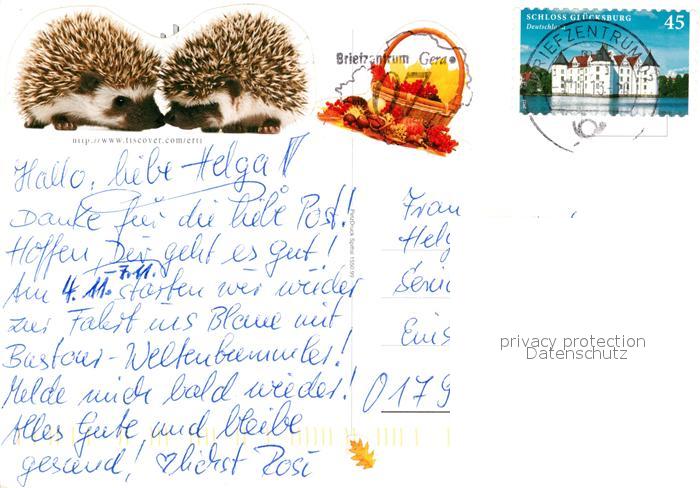 SCHLOSS GLÜCKSBURG 45
Deutschland
BRIEFZENTRUM
Briefzentrum Gera
07
http://www.tiscover.com/erti
Hallo, liebe Helga!
Danke für die liebe Post!
Hoffen, Dir geht es gut!
-7.11.
Am 4.11. starten wir wieder
zur Fahrt ins Blaue mit
Bustour-Weltenbummler!
Melde mich bald wieder!
Alles Gute und bleibe
gesund! ♡lichst Rosi
Frau
Helg
Eins
0179
privacy protection
Datenschutz